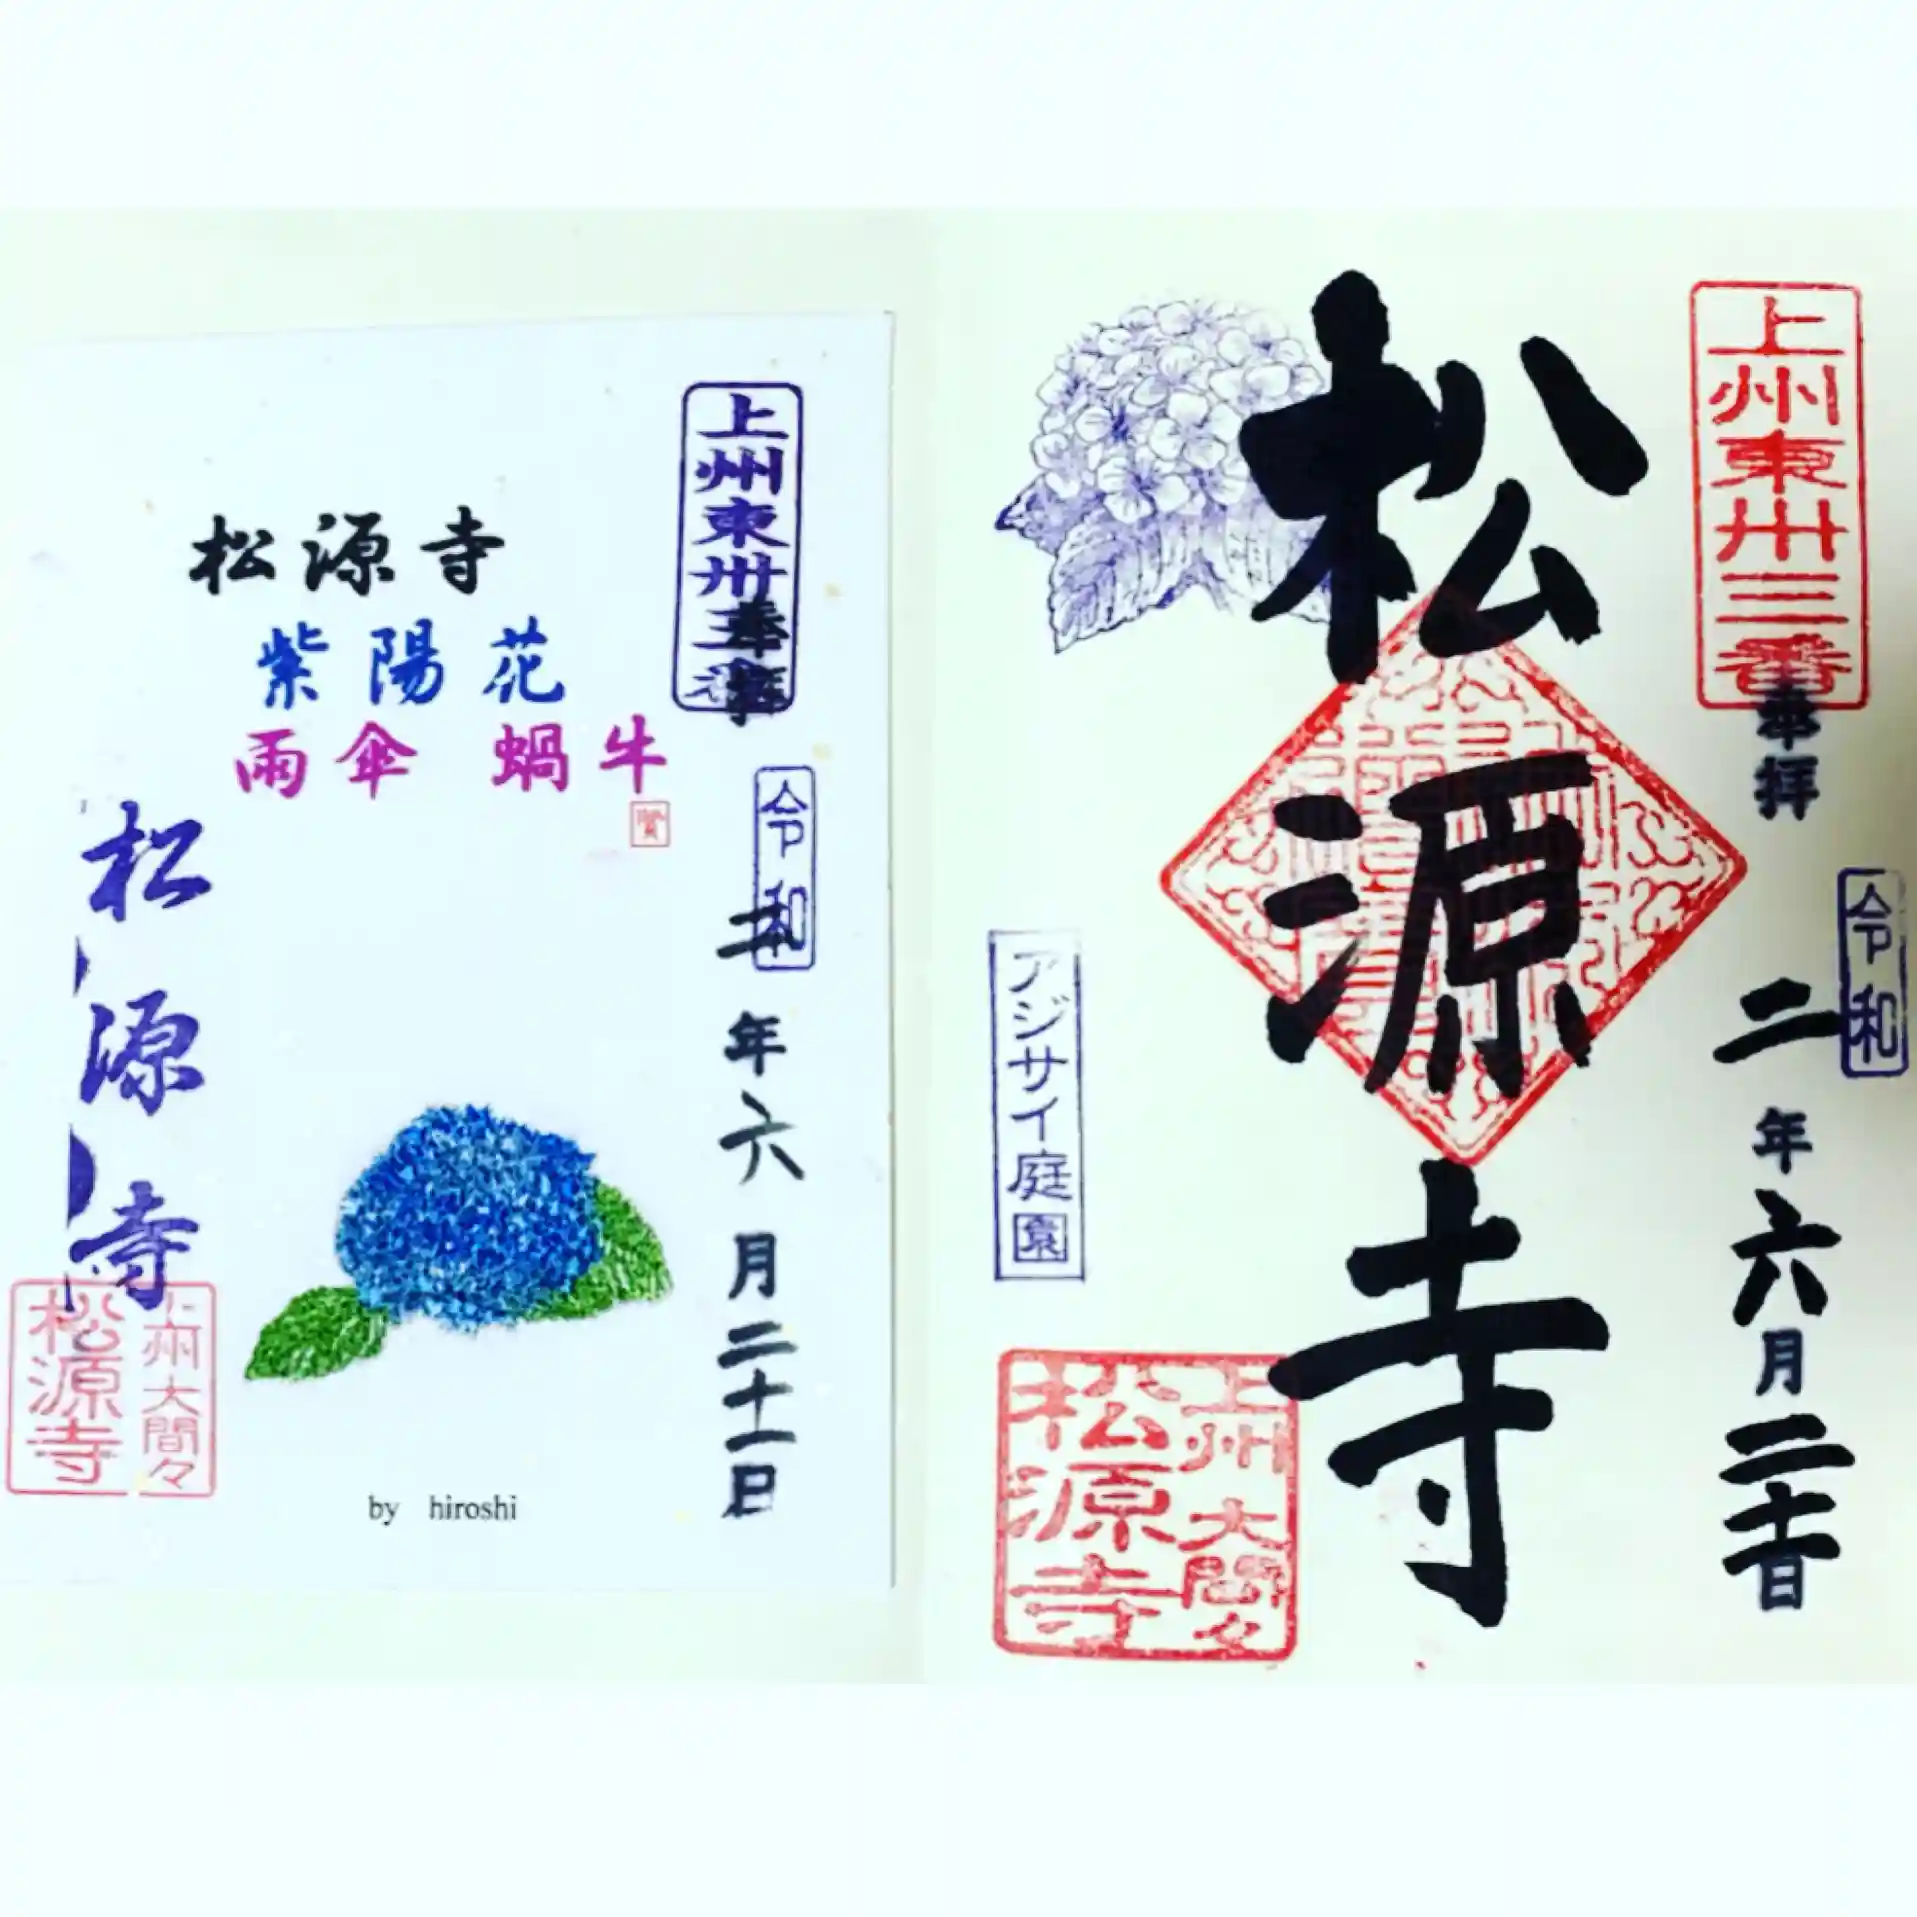 松源寺
紫陽花
雨傘 蝸牛
賢
上州東卅三番
奉拝
令和
二年六月二十一日
松源寺
上州大間々
松源寺
by hiroshi
上州東卅三番
奉拝
令和
二年六月二十一日
松源寺
アジサイ庭園
上州大間々
松源寺